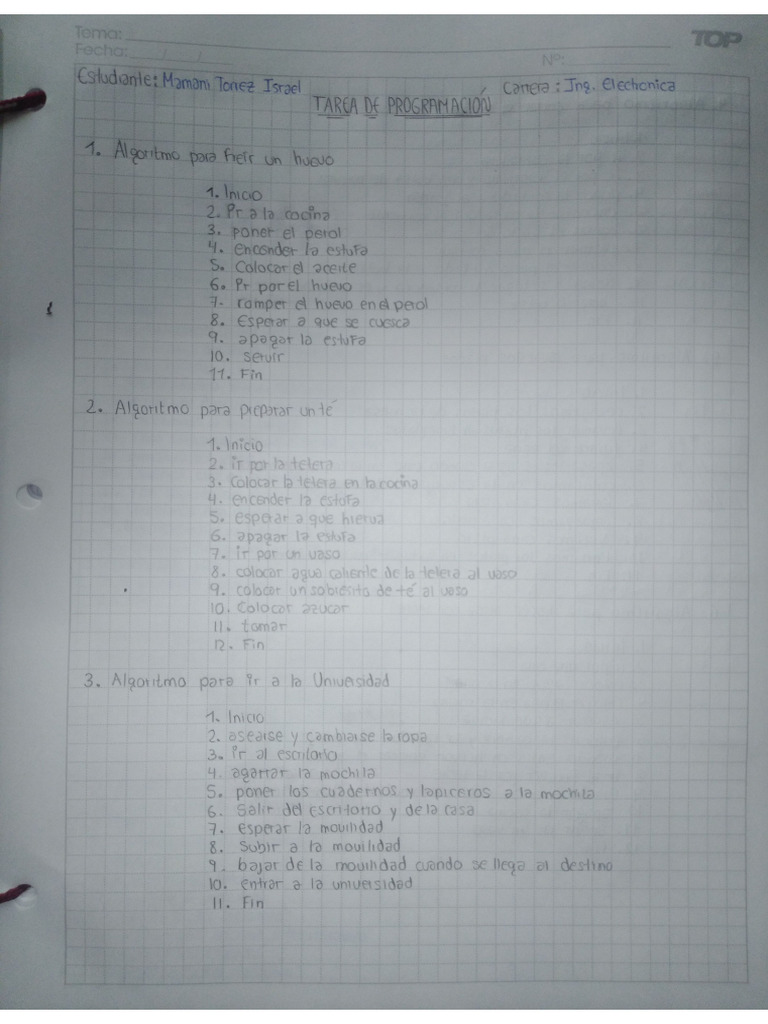 Tema:
TOP
Fecha: / /
Nº:
Estudiante: Mamani Torrez Israel
Carrera: Ing. Electronica
TAREA DE PROGRAMACIÓN
1. Algoritmo para freir un huevo
1. Inicio
2. Ir a la cocina
3. poner el perol
4. encender la estufa
5. Colocar el aceite
6. Ir por el huevo
7. romper el huevo en el perol
8. Esperar a que se cuesca
9. apagar la estufa
10. servir
11. Fin
2. Algoritmo para preparar un té
1. Inicio
2. ir por la tetera
3. Colocar la tetera en la cocina
4. encender la estufa
5. esperar a que hierva
6. apagar la estufa
7. ir por un vaso
8. colocar agua caliente de la tetera al vaso
9. colocar un sobresito de té al vaso
10. Colocar azucar
11. tomar
12. Fin
3. Algoritmo para ir a la Universidad
1. Inicio
2. asearse y cambiarse la ropa
3. Ir al escritorio
4. agarrar la mochila
5. poner los cuadernos y lapiceros a la mochila
6. Salir del escritorio y de la casa
7. esperar la movilidad
8. Subir a la movilidad
9. bajar de la movilidad cuando se llega al destino
10. entrar a la universidad
11. Fin